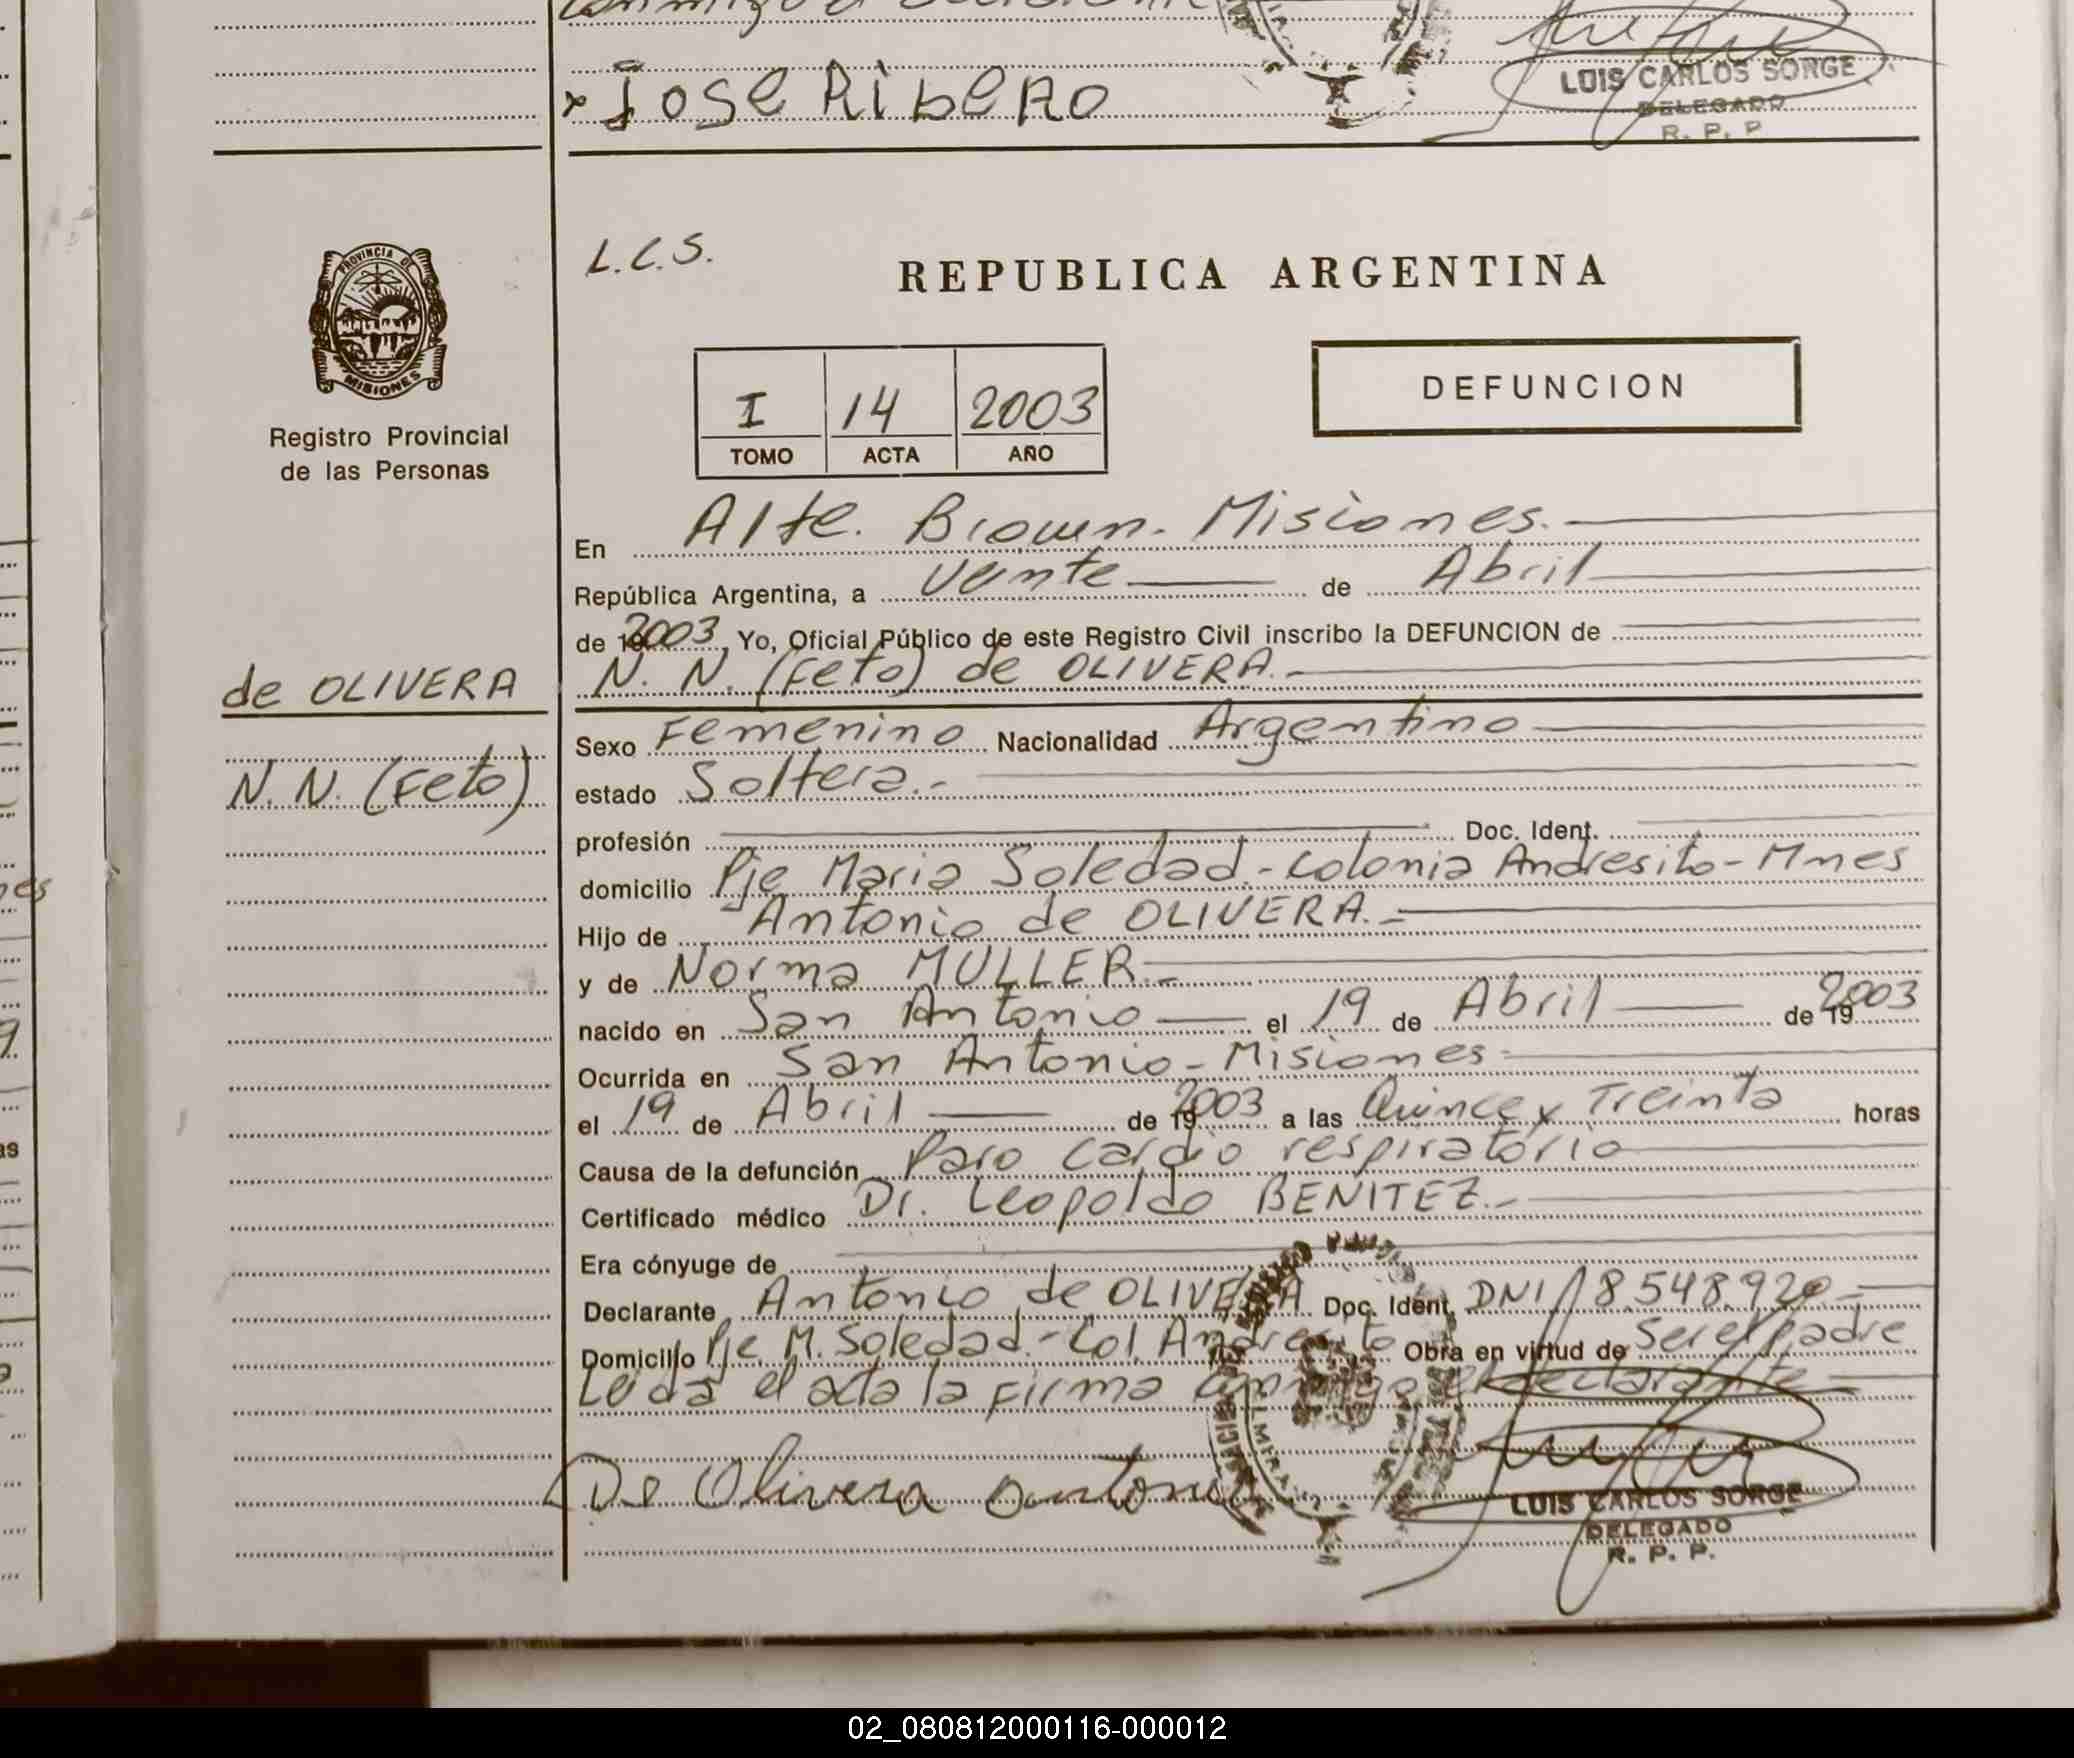 Jose Ribero
LUIS CARLOS SORGE
DELEGADO
R. P. P
PROVINCIA DE
MISIONES
Registro Provincial
de las Personas
L.C.S.
REPUBLICA ARGENTINA
I 14 2003
TOMO ACTA AÑO
DEFUNCION
En Alte. Brown - Misiones.
República Argentina, a veinte de Abril
de 19 2003, Yo, Oficial Público de este Registro Civil inscribo la DEFUNCION de
N. N. (Feto) de OLIVERA.
de OLIVERA
N. N. (Feto)
Sexo Femenino Nacionalidad Argentino
estado Soltera.-
profesión Doc. Ident.
domicilio Pje Maria Soledad.- Colonia Andresito - Mnes
Hijo de Antonio de OLIVERA.-
y de Norma MULLER.-
nacido en San Antonio el 19 de Abril de 19 2003
Ocurrida en San Antonio - Misiones -
el 19 de Abril de 19 2003 a las Quince y Treinta horas
Causa de la defunción Paro Cardio respiratorio
Certificado médico Dr. Leopoldo BENITEZ.-
Era cónyuge de
Declarante Antonio de OLIVERA Doc. Ident. DNI 18.548.920 -
Domicilio Pje M. Soledad.- Col. Andresito Obra en virtud de Ser el padre
Leida el acta la firma conmigo el declarante -
De Olivera antonio
LUIS CARLOS SORGE
DELEGADO
R. P. P.
02_080812000116-000012